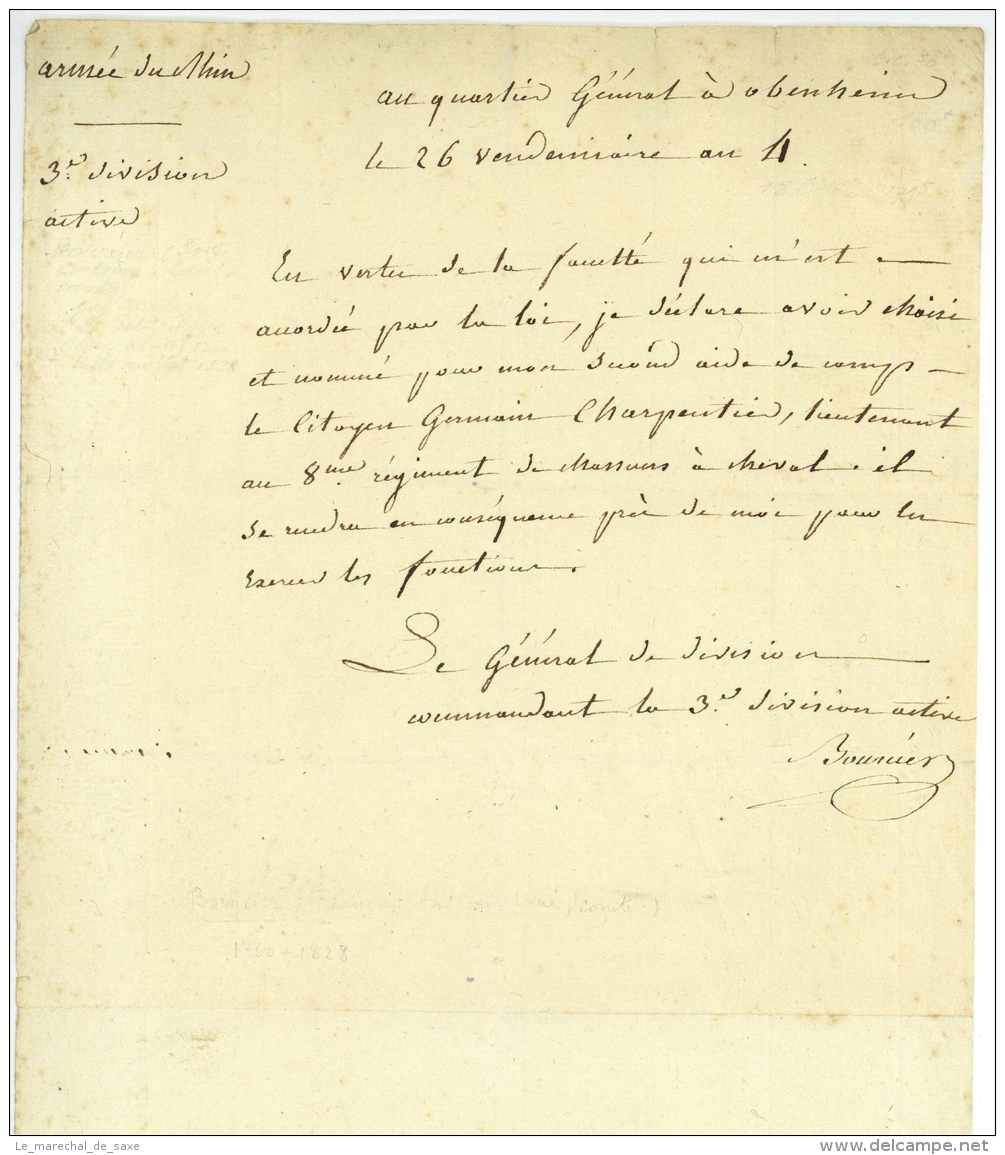 armée du Rhin
3.e division
active
au quartier Général à obenheim
le 26 vendemiaire an 4.
En vertu de la faculté qui m'est
accordée par la loi, je déclare avoir choisi
et nommé pour mon second aide de camp
le Citoyen Germain Charpentier, lieutenant
au 8me. régiment de chasseurs à cheval. il
se rendra en conséquence près de moi pour en
exercer les fonctions.
Le Général de division
commandant la 3.e division active
Bourcier
comte)
1828
Le_marechal_de_saxe
delcampe.net